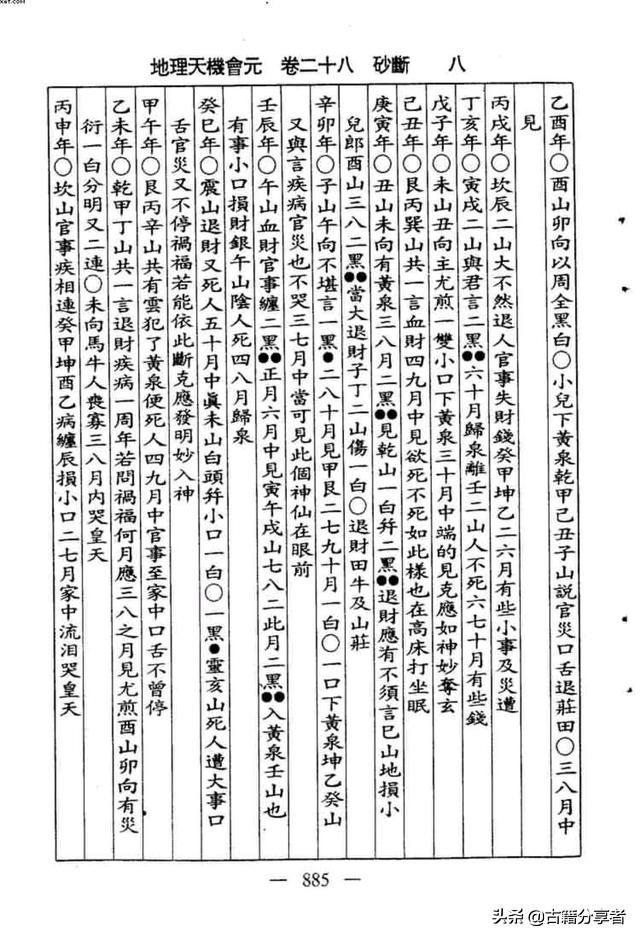 xet.com
地理天機會元 卷二十八 砂斷 八
乙酉年○酉山卯向以周全黑白○小兒下黃泉乾甲己丑子山說官災口舌退莊田○三八月中
見
丙戌年○坎辰二山大不然退人官事失財錢癸甲坤乙二六月有些小事及災遭
丁亥年○寅戌二山與君言二黑●●六十月歸泉離壬二山人不死六七十月有些錢
戊子年○未山丑向主尤煎一雙小口下黃泉三十月中端的見克應如神妙奪玄
己丑年○艮丙巽山共一言血財四九月中見欲死不死如此樣也在高床打坐眠
庚寅年○丑山未向有黃泉三八月二黑●●見乾山一白幷二黑●●退財應有不須言巳山地損小
兒郎酉山三八二黑●●當大退財子丁二山傷一白○退財田牛及山莊
辛卯年○子山午向不堪言一黑●二八十月見甲艮二七九十月一白○一口下黃泉坤乙癸山
又與言疾病官災也不哭三七月中當可見此個神仙在眼前
壬辰年○午山血財官事纏二黑●●正月六月中見寅午戌山七八二此月二黑●●入黃泉壬山也
有事小口損財銀午山陰人死四八月歸泉
癸巳年○震山退財又死人五十月中眞未山白頭幷小口一白○一黑●靈亥山死人遭大事口
舌官災又不停禍福若能依此斷克應發明妙入神
甲午年○艮丙辛山共有雲犯了黃泉便死人四九月中官事至家中口舌不曾停
乙未年○乾甲丁山共一言退財疾病一周年若問禍福何月應三八之月見尤煎酉山卯向有災
衍一白分明又二連○未向馬牛人喪寡三八月內哭皇天
丙申年○坎山官事疾相連癸甲坤酉乙病纏辰損小口二七月家中流泪哭皇天
— 885 —
头条 @古籍分享者